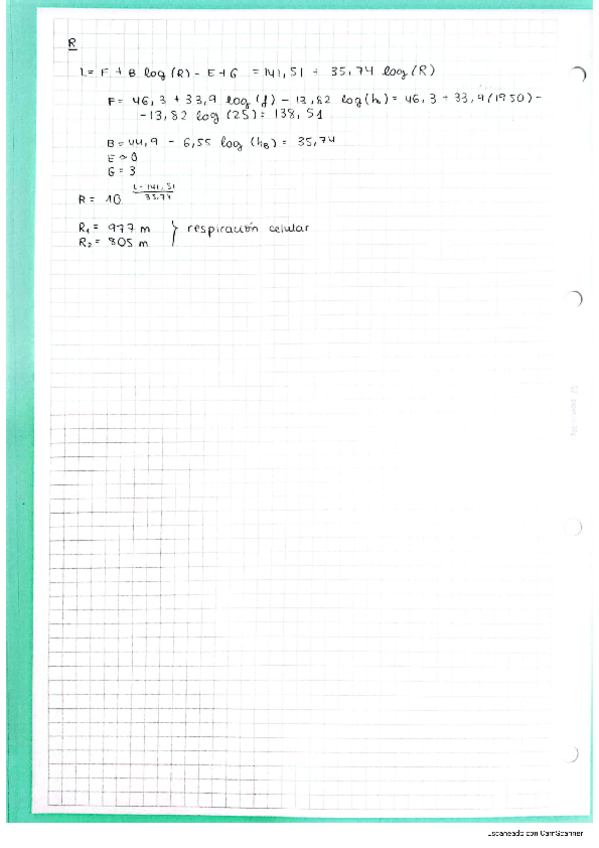 R
L = F + B log(R) - E + G = 141,51 + 35,74 log(R)
F = 46,3 + 33,9 log(f) - 13,82 log(h) = 46,3 + 33,9(1950) -
- 13,82 log(25) = 138,51
B = 44,9 - 6,55 log(hB) = 35,74
E ≈ 0
G = 3
R = 10^((L - 141,51)/35,74)
R1 = 977 m } respiración celular
R2 = 805 m
Escaneado con CamScanner